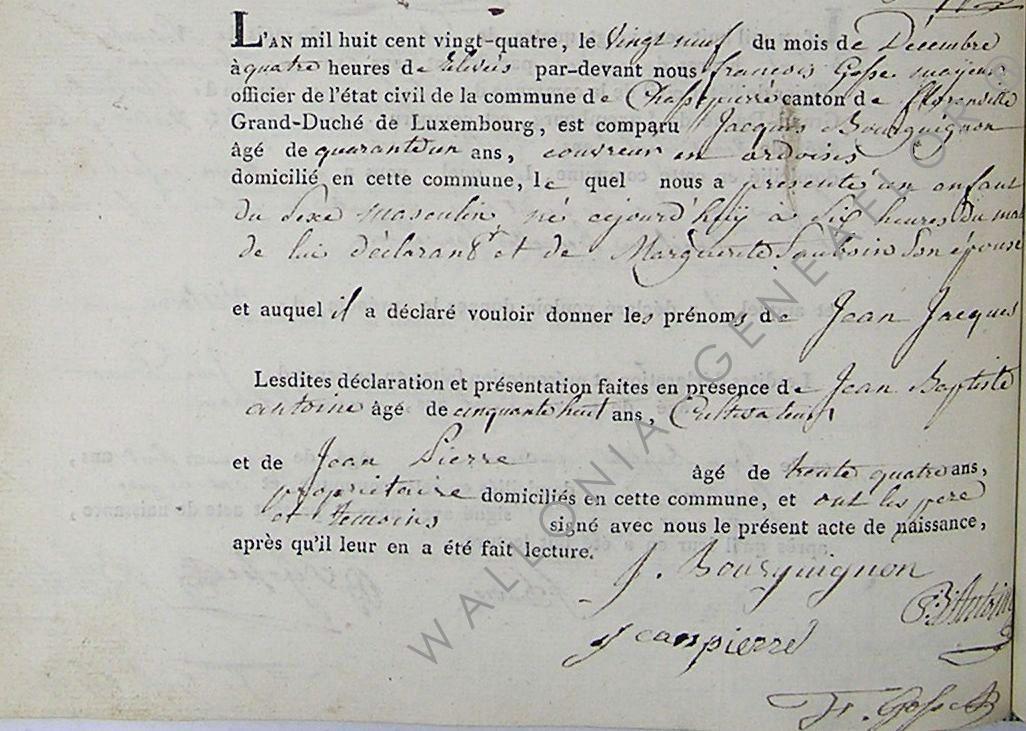 L'AN mil huit cent vingt-quatre, le Vingt neuf du mois de Décembre
à quatre heures de relevés par-devant nous francois Gosse mayeur
officier de l'état civil de la commune de Chassepierre canton de florenville
Grand-Duché de Luxembourg, est comparu Jacques Bourguignon
âgé de quarantedun ans, couvreur en ardoises
domicilié en cette commune, le quel nous a présenté un enfant
du sexe masculin né cejourd'huy à six heures du mat
de lui déclarant et de Marguerite son épouse
et auquel il a déclaré vouloir donner les prénoms de Jean Jacques
Lesdites déclaration et présentation faites en présence de Jean Baptiste
antoine âgé de cinquante huit ans, Cultivateur
et de Jean Pierre âgé de trente quatre ans,
proprietaire domiciliés en cette commune, et ont les pere
et temoins signé avec nous le présent acte de naissance,
après qu'il leur en a été fait lecture.
J. Bourguignon
Antoine
Jean pierre
F. Gosse
WALLONIA GENEALOGY